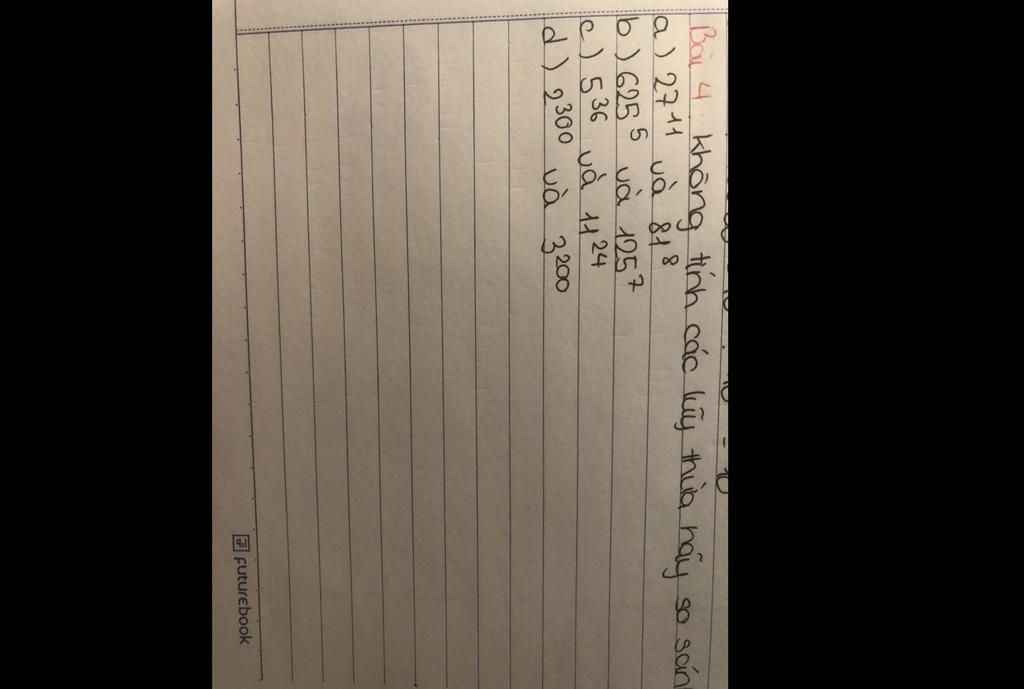 Bài 4. không tính các lũy thừa hãy so sán
a) 27¹¹ và 81⁸
b) 625⁵ và 125⁷
c) 5³⁶ và 11²⁴
d) 2³⁰⁰ và 3²⁰⁰
FUTUREBOOK